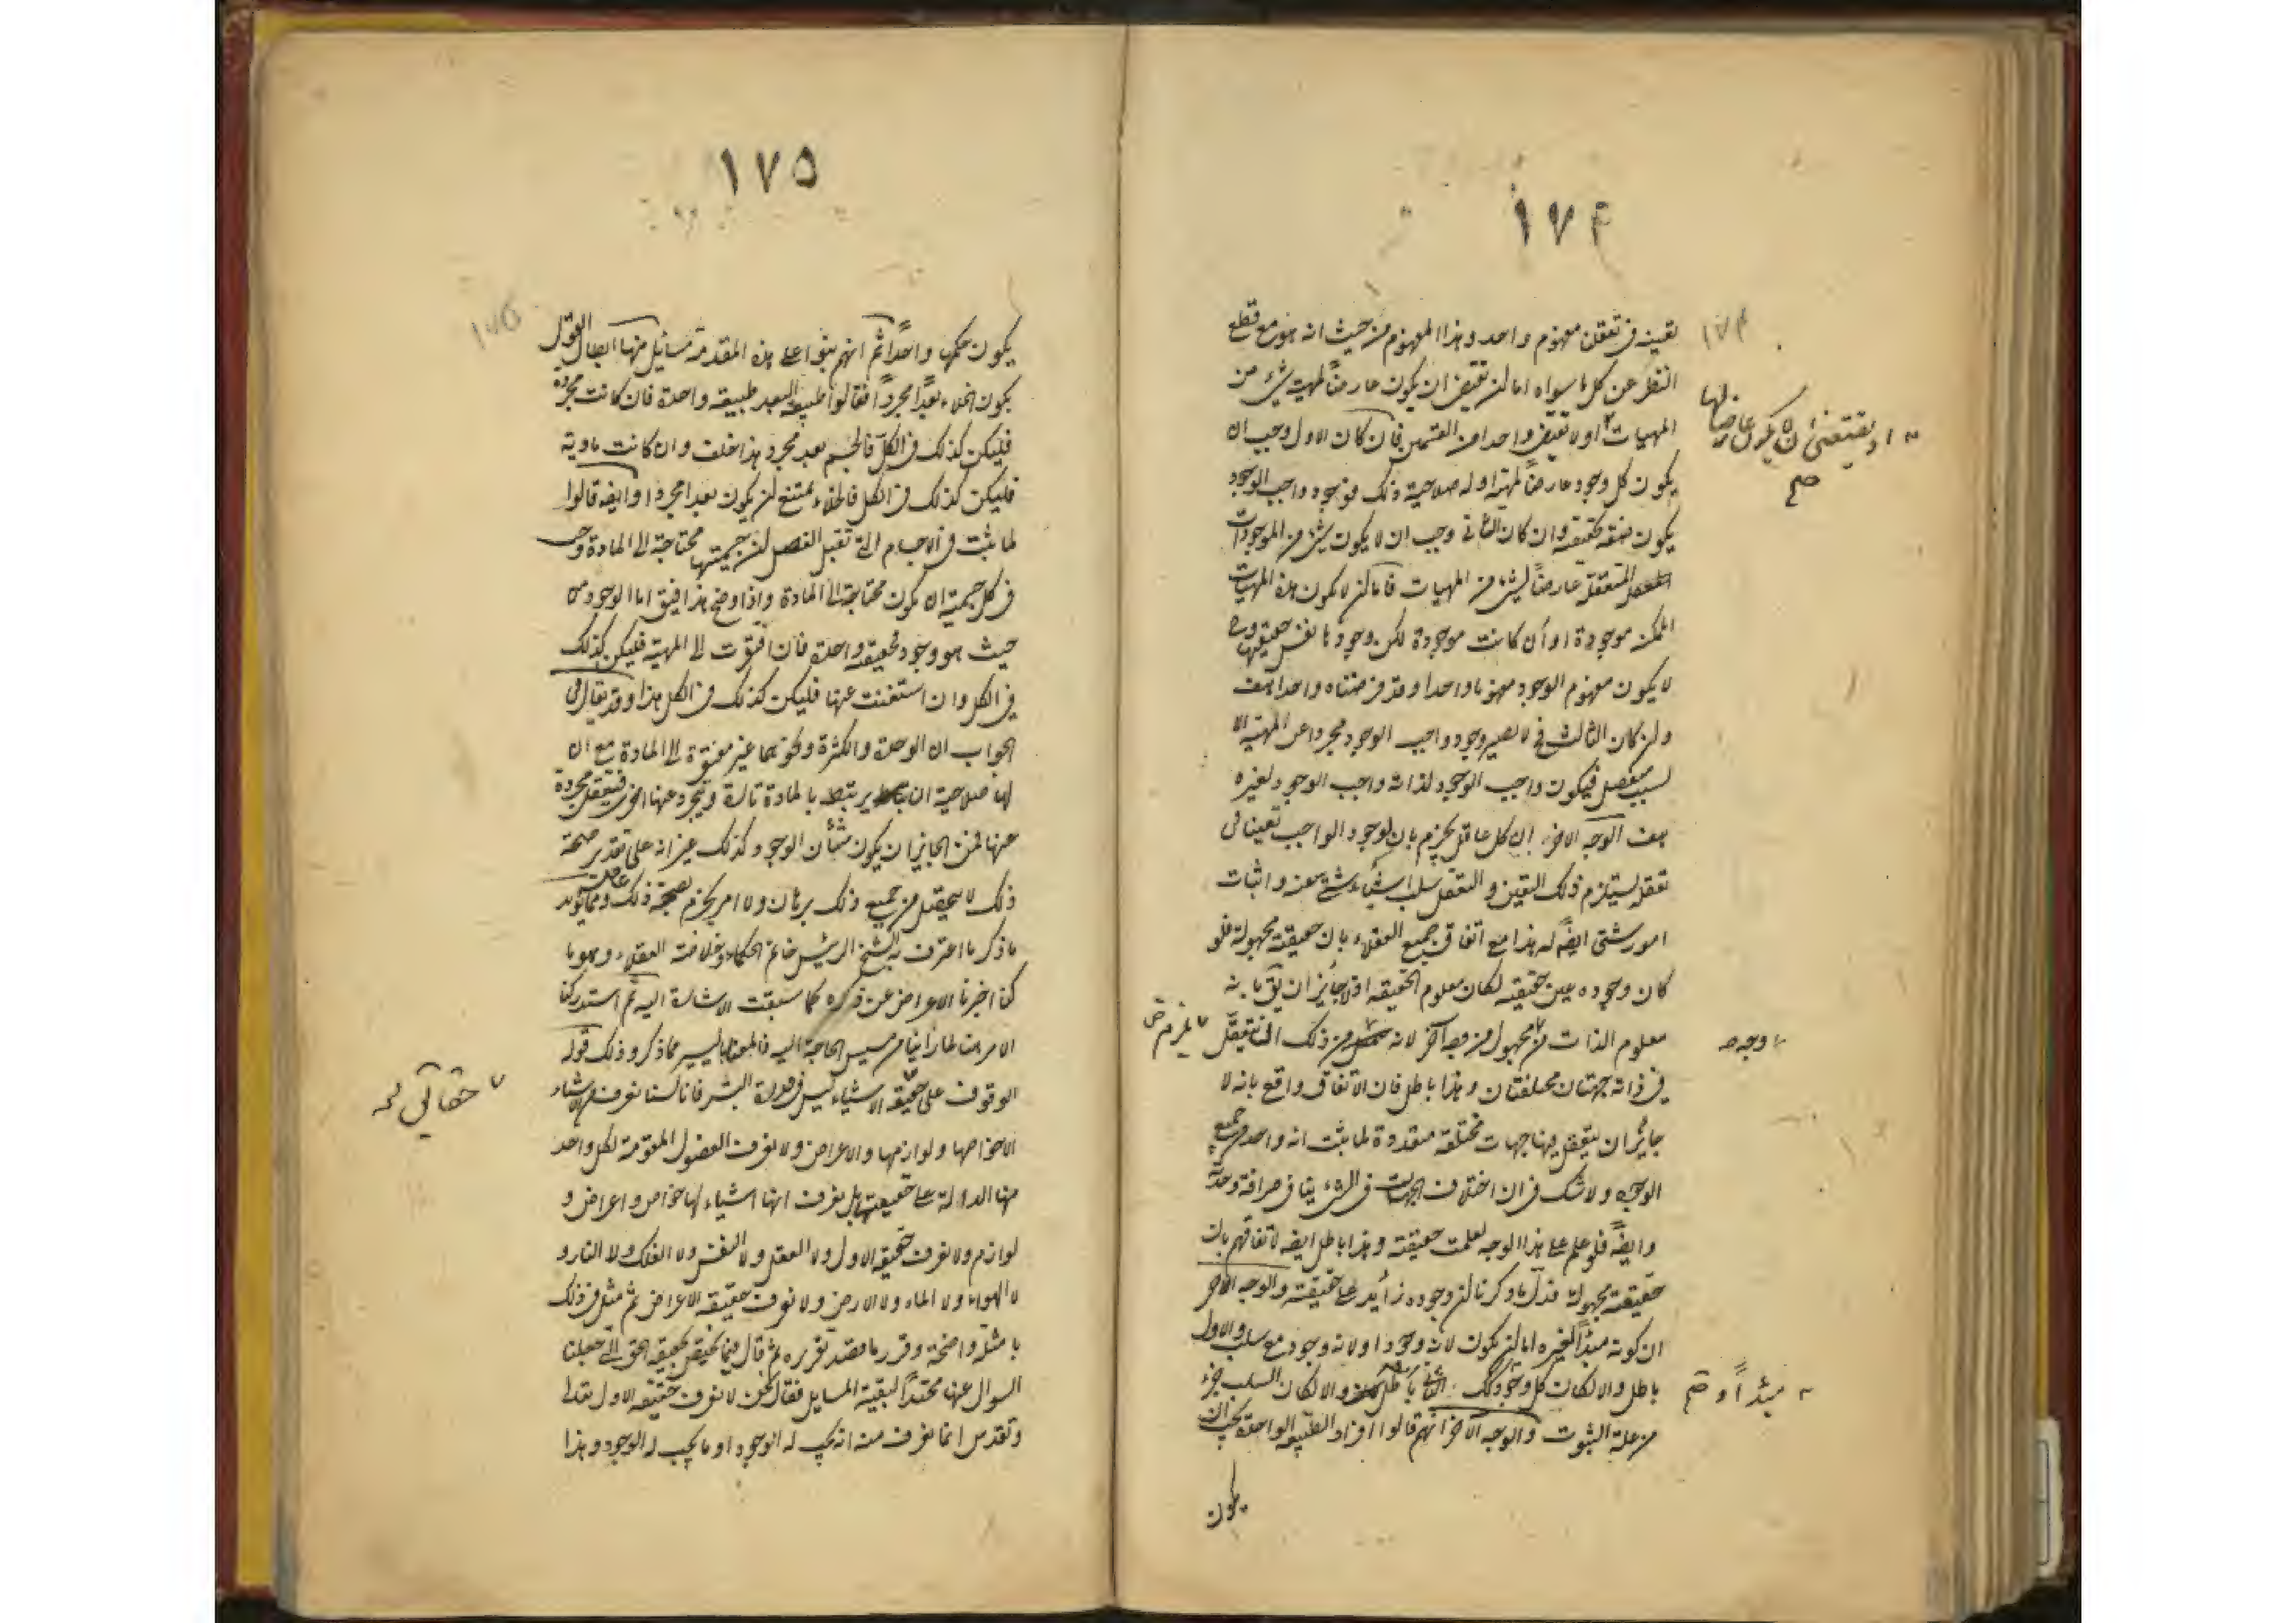 ١٧٤
١٧٤
تعينه فى تعقل مفهوم واحد وهذا المفهوم من حيث انه هو مع قطع
النظر عن كل ما سواه اما لن يقتضى ان يكون عارضاً لمهية شىء من
المهيات او لا يقتضى واحدا من القسمين فان كان الاول وجب ان
او يقتضى ان لا يكون عارضا لها
صح
يكون كل وجود عارضاً لمهية اوله صلاحية ذلك فوجود واجب الوجود
يكون صفة حقيقته وان كان الثانى وجب ان لا يكون شىء من الموجودات
المتعقلة عارضاً لشىء من المهيات فاما لن لا يكون هذه المهيات
الممكن موجودة او ان كانت موجودة لكن وجودها نفس حقيقتها وح
لا يكون مفهوم الوجود مفهوما واحدا وقد فرضناه واحدا هف
ولن كان الثالث فح لا يصير وجود واجب الوجود مجردا عن المهية الا
لسبب منفصل فيكون واجب الوجود لذاته واجب الوجود لغيره
هف الوجه الاخر ان كل عاقل يجزم بان لوجود الواجب تعينا فى
تعقله يستلزم ذلك التعين و التعقل سلب اشياء شتى عنه واثبات
امور شتى ايضاً له هذا مع اتفاق جميع العقلاء بان حقيقته مجهولة فلو
كان وجوده عين حقيقته لكان معلوم الحقيقه اذ لا جايز ان يق بانه
معلوم الذات من مجهول من وجه آخر لانه من ذلك ان يتعقل
وجه صح
يلزم ص
فى ذاته جهتان مختلفتان وهذا باطل فان الاتفاق واقع بانه لا
جايز ان يتعقل فيها جهات مختلفة متعددة لما ثبت انه واحد من جميع
الوجوه ولا شك فى ان اختلاف الجهات فى الشىء ينافى صرافة وحدته
وايضاً فلو علم على هذا الوجه لعلمت حقيقته وهذا باطل ايضه لاتفاقهم بان
حقيقته مجهولة فدل ما ذكرنا لن وجوده زائد على حقيقته والوجه الآخر
ان كونه مبدأ لغيره اما لن يكون لانه وجود او لانه وجود مع سلب والاول
باطل والا لكان كل وجود كذلك الثانى باطل والا لكان السلب جزء
مبدأ و صح
من علة الثبوت والوجه الآخر انهم قالوا افراد الطبيعه الواحدة يجب ان
يكون
١٧٥
١٧٥
يكون حكمها واحداً ثم انهم بنوا على هذه المقدمة مسائل منها ابطال القول
يكون الخلاء بعداً مجرداً فقالوا طبيعة البعد طبيعة واحدة فان كانت مجردة
فليكن كذلك فى الكل فالجسم بعد مجرد هذا خلف وان كانت مادية
فليكن كذلك فى الكل فالخلاء ممتنع لن يكون بعدا مجردا وايضه قالوا
لما ثبت فى الاجسام التى تقبل الفصل لن جسميتها محتاجة الى المادة وجب
فى كل جسمية ان يكون محتاجة الى المادة واذا وضح هذا فيق اما الوجود من
حيث هو وجود فحقيقة واحدة فان افتقرت الى المهية فليكن كذلك
فى الكل وان استغنت عنها فليكن كذلك فى الكل هذا وقد يقال فى
الجواب ان الوحدة والكثرة وكونهما غير مفتقرة الى المادة مع ان
لها صلاحية ان يرتبط بالمادة تارة ويجرد عنها اخرى فتتعقل مجردة
عنها فمن الجايز ان يكون شأن الوجود كذلك غير انه على تقدير صحة
ذلك لا يحصل من جميع ذلك برهان ولا امر يجزم بصحة ذلك ومما يؤيد
ما ذكر ما اعترف به الشيخ الرئيس خاتم الحكماء وخلافته العقلاء وهو ما
كنا اخرنا الاعراض عن ذكره كما سبقت الاشارة اليه ثم استدركنا
الامر هنا لما رأينا من مسيس الحاجة اليه فالمعنا باليسير مما ذكر وذلك قوله
الوقوف على حقيقة الاشياء ليس فى قدرة البشر فانا لسنا نعرف من الاشياء
حقائق صح
الا خواصها ولوازمها والاعراض ولا نعرف الفصول المقومة لكل واحد
منها الدالة على حقيقتها بل نعرف انها اشياء لها خواص واعراض و
لوازم ولا نعرف حقيقة الاول ولا العقل ولا النفس ولا الفلك ولا النار و
لا الهواء ولا الماء ولا الارض ولا نعرف حقيقة الاعراض ثم مثل فى ذلك
بامثلة واضحة وقرر ما قصد تقريره ثم قال فيما يختص بحقيقة الحق التى جعلنا
السوال عنها محتداً لبقية المسايل فقال نحن لا نعرف حقيقة الاول تعالى
وتقدس انما نعرف منه انه يجب له الوجود او ما يجب له الوجود وهذا